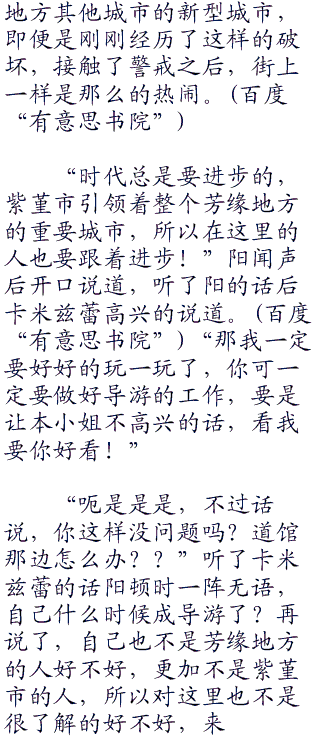 地方其他城市的新型城市，
即便是刚刚经历了这样的破
坏，接触了警戒之后，街上
一样是那么的热闹。(百度
“有意思书院”)
“时代总是要进步的，
紫堇市引领着整个芳缘地方
的重要城市，所以在这里的
人也要跟着进步！”阳闻声
后开口说道，听了阳的话后
卡米兹蕾高兴的说道。(百度
“有意思书院”)“那我一定
要好好的玩一玩了，你可一
定要做好导游的工作，要是
让本小姐不高兴的话，看我
要你好看！”
“呃是是是，不过话
说，你这样没问题吗？道馆
那边怎么办？？”听了卡米
兹蕾的话阳顿时一阵无语，
自己什么时候成导游了？再
说了，自己也不是芳缘地方
的人好不好，更加不是紫堇
市的人，所以对这里也不是
很了解的好不好，来